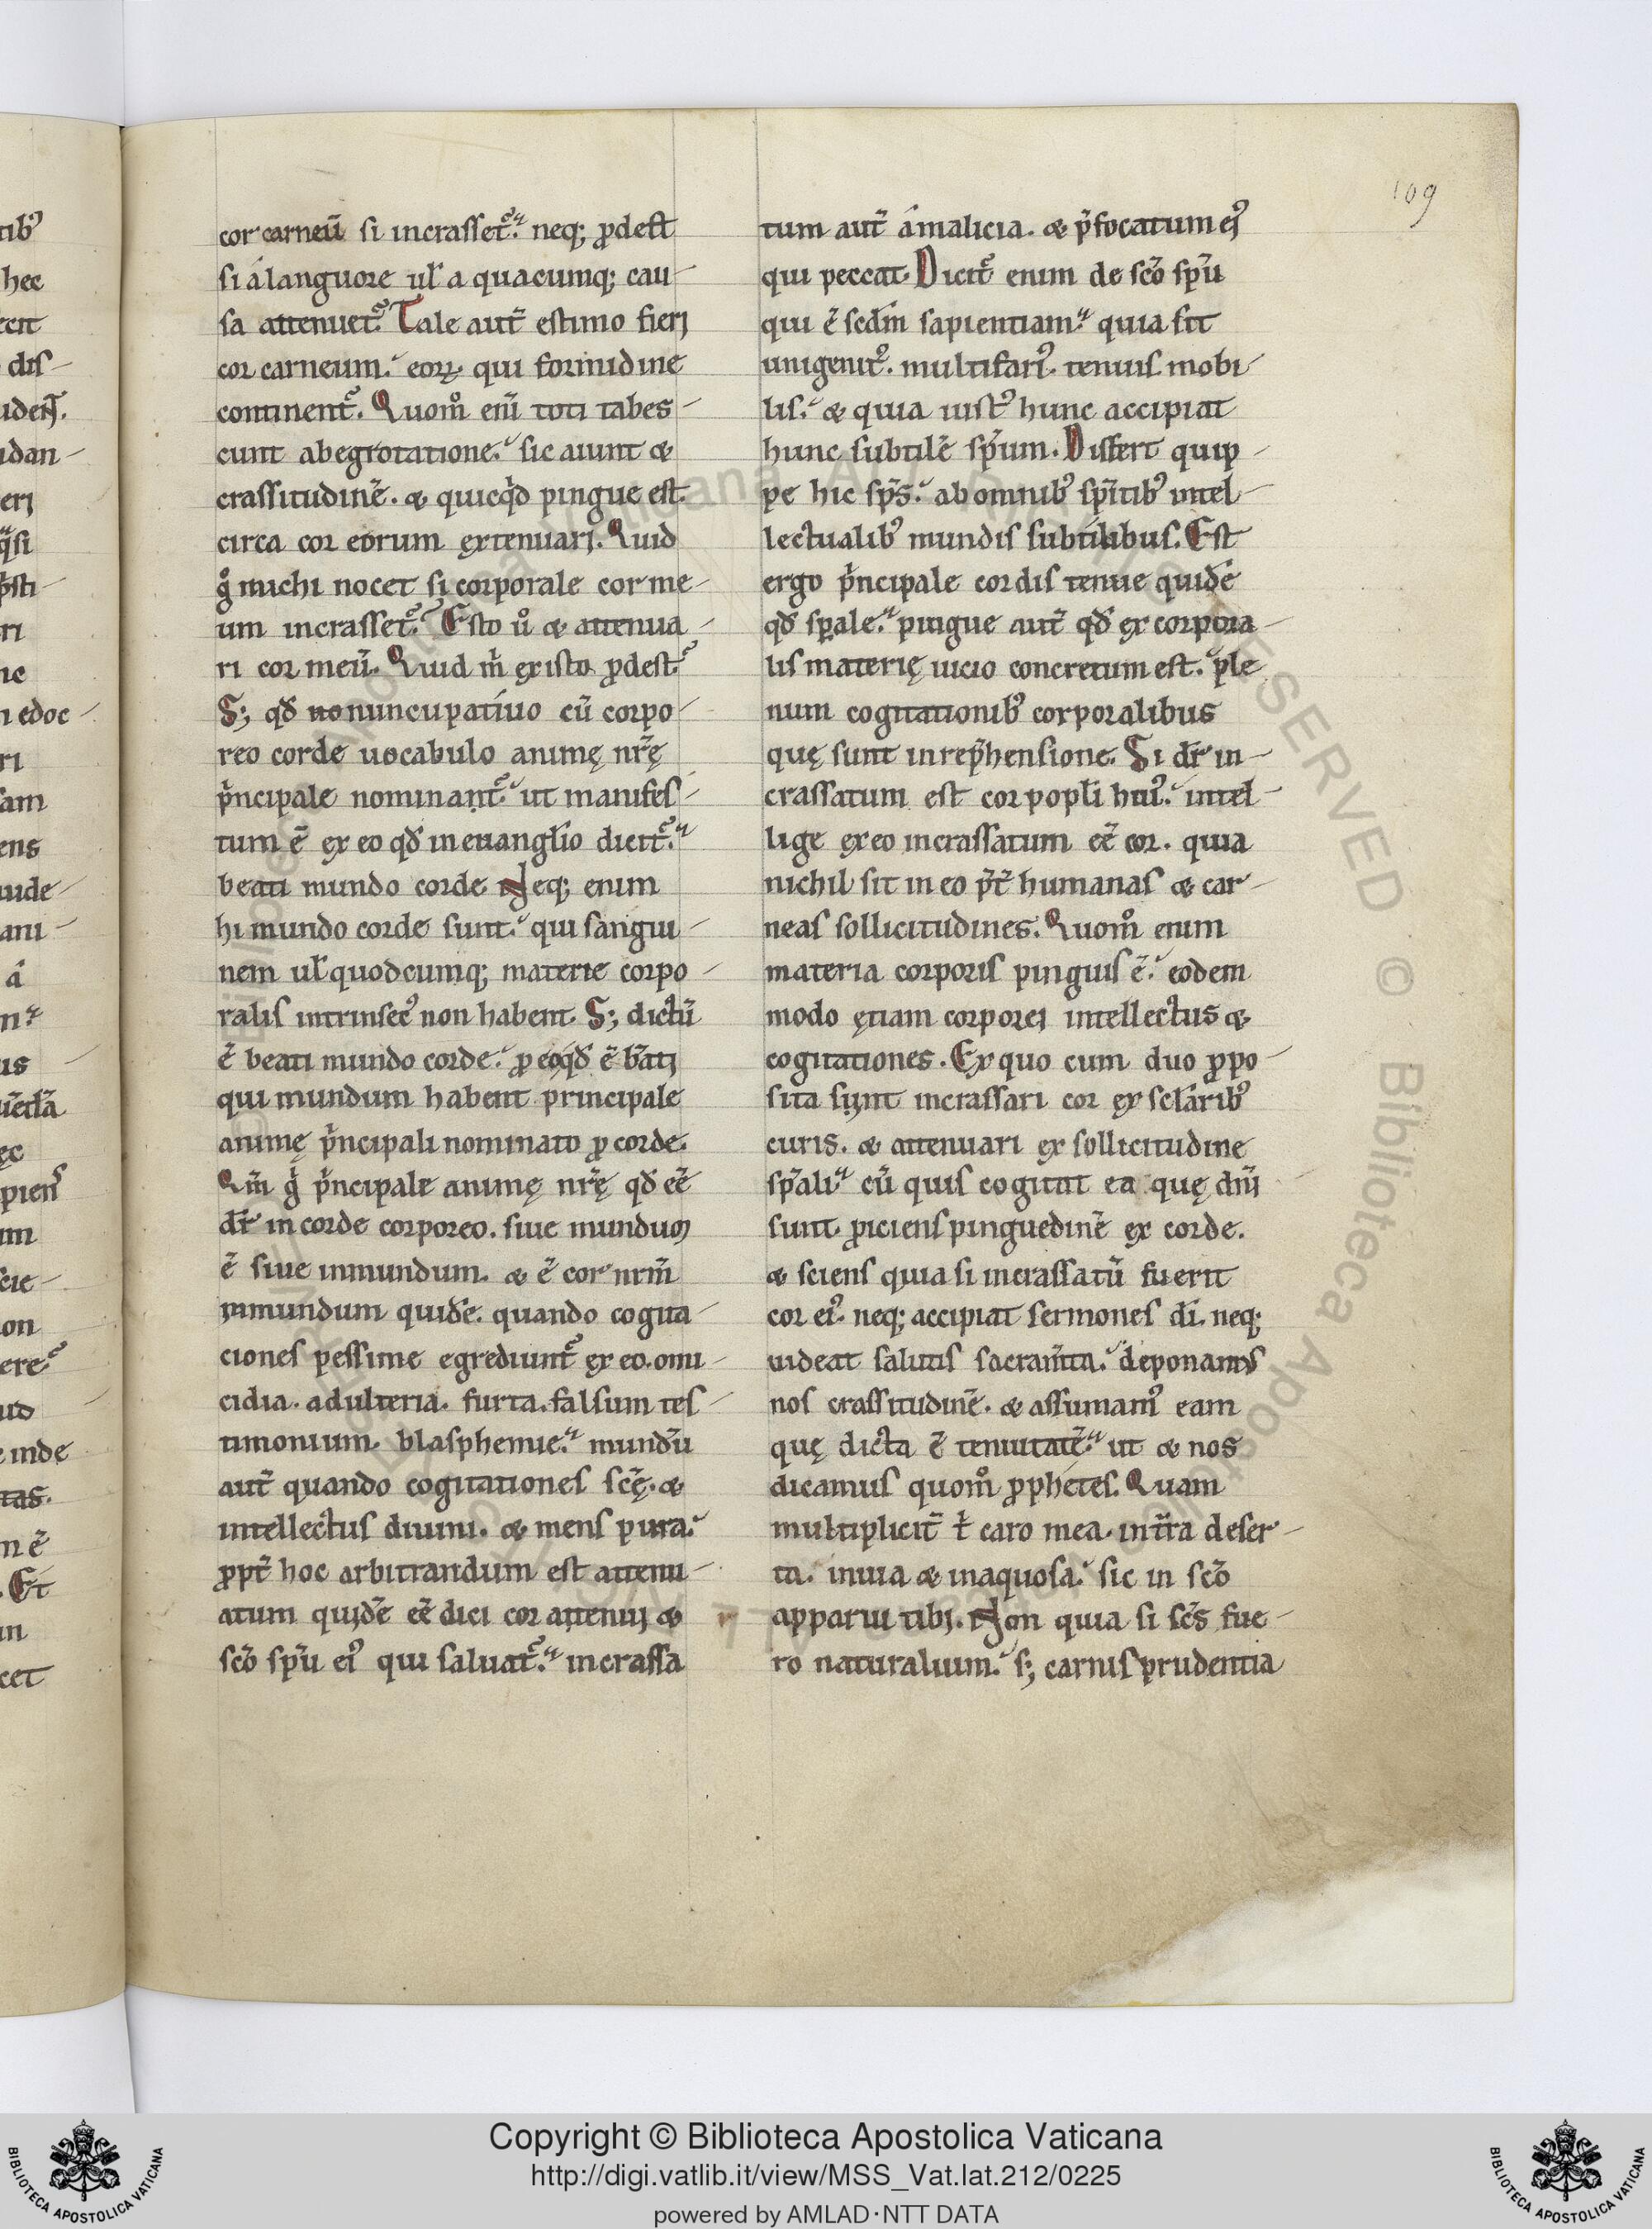 109
cor carneū si incrasset᷑. neq; ꝓdest
si a languore ul̛ a quacumq; cau-
sa attenuet᷑. Tale aut̄ estimo fieri
cor carneum. eoꝝ qui formidine
continent᷑. Quom̊ eni̅ toti tabes-
cunt ab egrotatione. sic aiunt &
crassitudinē. & quicq̇d pingue est
circa cor eorum extenuari. Quid
g̊ michi nocet si corporale cor me-
um incrasset᷑. Esto u̇̊ & attenua-
ri cor meū. Quid m̍ ex isto ꝓdest.
S; qđ no nuncupatiuo cū corpo-
reo corde uocabulo animę nr̄ę
p̍ncipale nominant᷑. ut manifes-
tum ē ex eo qđ in euanglio dicit᷑.
beati mundo corde Neq; enim
hi mundo corde sunt. qui sangui-
nem ul̛ quodcumq; materie corpo-
ralis intrinsecꝰ non habent. S; dictū
ē beati mundo corde. ꝓ eo qđ ē b̄ati
qui mundum habent principale
animę p̍ncipali nominato ꝓ corde.
Qm̄ g̍ p̍ncipale animę nr̄ę qđ eē
dr̄ in corde corporeo. siue munduꝫ
ē siue inmundum. & ē cor nrm̄
inmundum quidē. quando cogita-
ciones pessime egrediunt᷑ ex eo. omi-
cidia. adulteria. furta. falsum tes-
timonium. blasphemie. mundū
aut̄ quando cogitationes sc̄ę. &
intellectus diuini. & mens pura.
ꝓpt̄ hoc arbitrandum est attenu-
atum quidē eē dici cor attenui &
sc̄o sp̄u eiꝰ qui saluat᷑. incrassa
tum aut̄ a malicia. & p̄focatum eiꝰ
qui peccat. Dicit᷑ enim de sc̄o sp̄u
qui ē scd̄m sapientiam. quia sit
unigenitꝰ. multifariꝰ. tenuis mobi-
lis. & quia iustꝰ hunc accipiat
hunc subtilē sp̄um. Differt quip-
pe hic sp̄s. ab omnibꝰ sp̄itibꝰ intel-
lectualibꝰ mundis subtilibus. Est
ergo p̍ncipale cordis tenue quidē
qđ sp̄ale. pingue aut̄ qđ ex corpora-
lis materię uicio concretum est. ple-
num cogitationibꝰ corporalibus
quę sunt in rep̄hensione. Si dr̄ in-
crassatum est cor popl̄i huiꝰ. intel-
lige ex eo incrassatum eē cor. quia
nichil sit in eo p̄t̄ humanas & car-
neas sollicitudines. Quom̊ enim
materia corporis pinguis ē. eodem
modo ętiam corporei intellectus &
cogitationes. Ex quo cum duo ꝓpo-
sita sunt incrassari cor ex sclāribꝰ
curis. & attenuari ex sollicitudine
sp̄ali. cū quis cogitat ea quę dn̄i
sunt. ꝓiciens pinguedinē ex corde.
& sciens quia si incrassatū fuerit
cor eiꝰ. neq; accipiat sermones dī. neq;
uideat salutis sacram̄ta. deponamꝰ
nos crassitudinē. & assumamꝰ eam
quę dicta ē tenuitatē. ut & nos
dicamus quom̊ ꝓphetes. Quam
multiplicit̄ t̍ caro mea. in t̄ra deser-
ta. inuia & inaquosa. sic in sc̄o
apparui tibi. Non quia si sc̄s fue-
ro naturalium. s; carnis prudentia
Copyright © Biblioteca Apostolica Vaticana
http://digi.vatlib.it/view/MSS_Vat.lat.212/0225
powered by AMLAD·NTT DATA
BIBLIOTECA APOSTOLICA VATICANA
BIBLIOTECA APOSTOLICA VATICANA